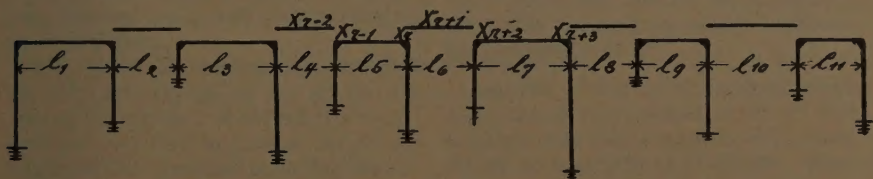 Xr-2 Xr-1 Xr Xr+1 Xr+2 Xr+3
l1 l2 l3 l4 l5 l6 l7 l8 l9 l10 l11